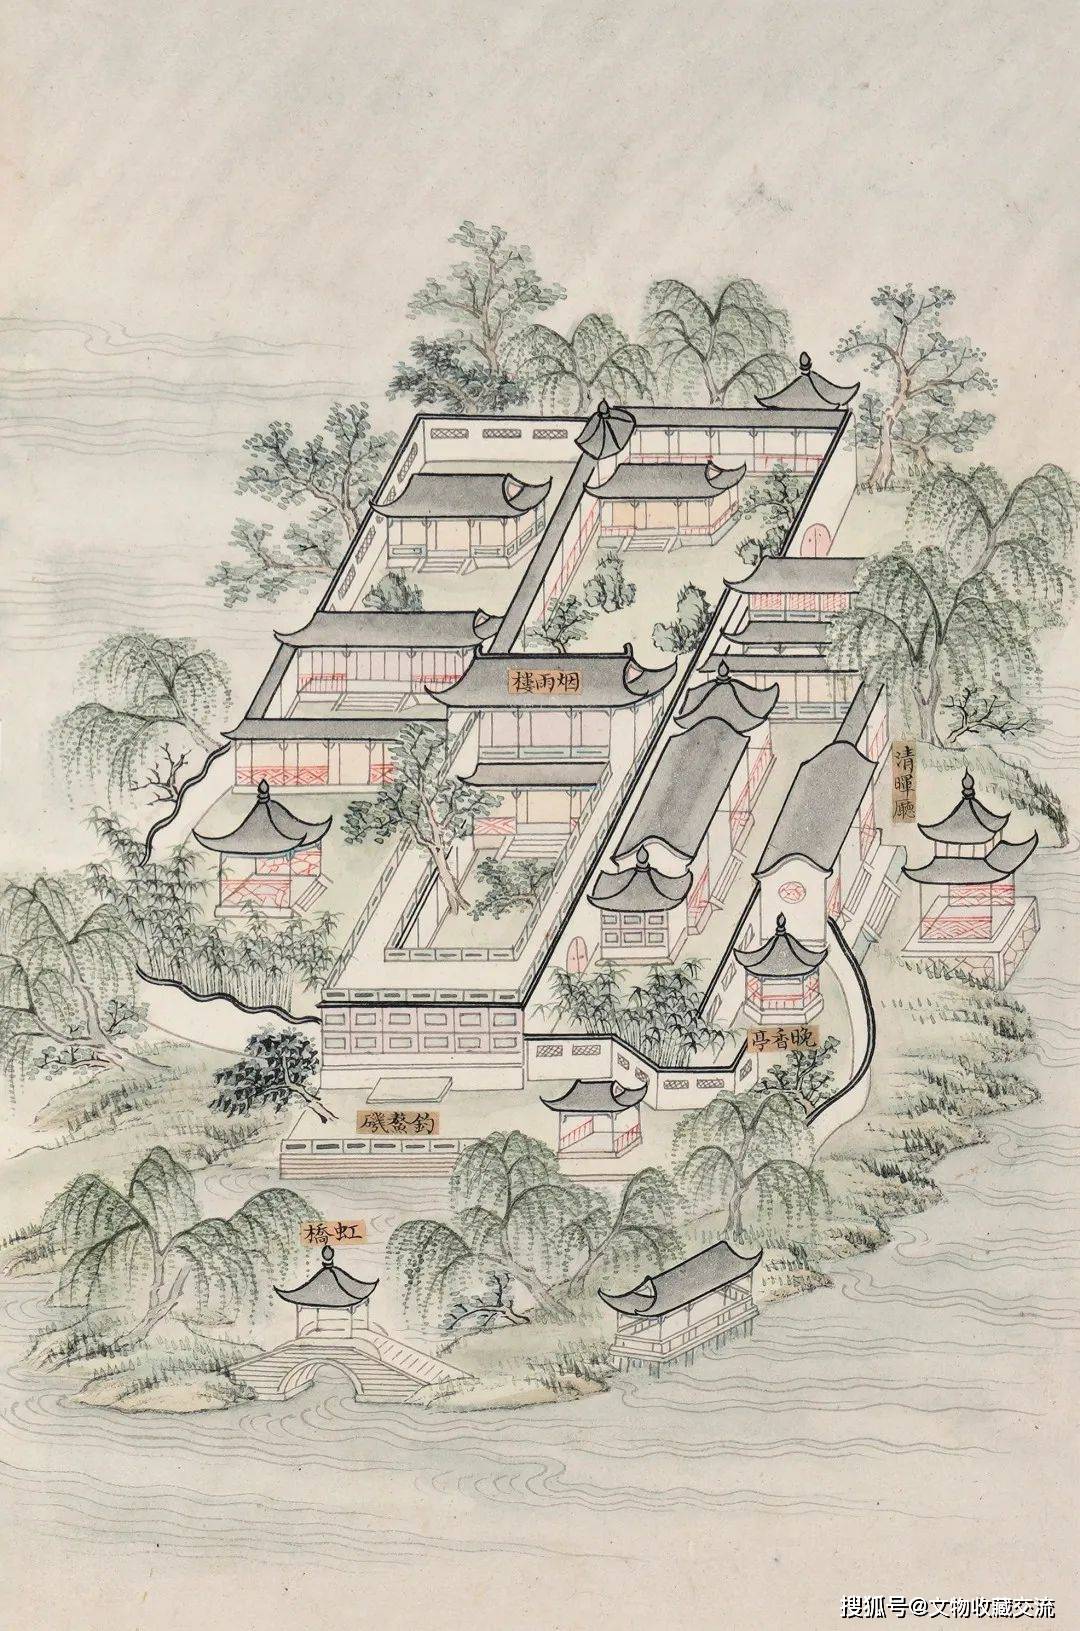 烟雨楼
清暉廳
晚香亭
釣鰲磯
虹橋
搜狐号@文物收藏交流